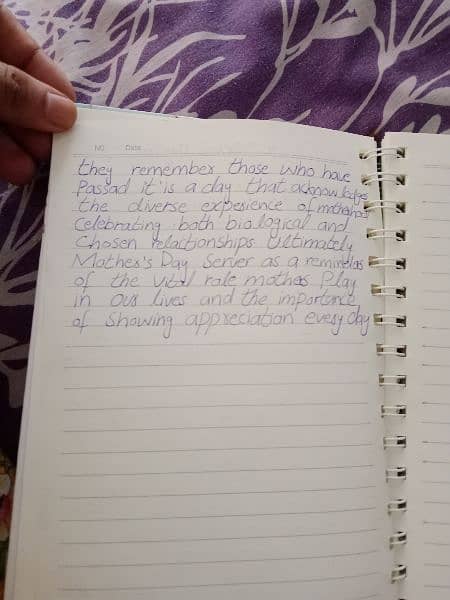 NO. Date
they remember those who have
Passad it is a day that acknowledges
the diverse experience of motherhood
Celebrating both biological and
Chosen relationships Ultimately
Mother's Day Server as a reminders
of the vital role mothers Play
in our lives and the importance
of showing appreciation every day